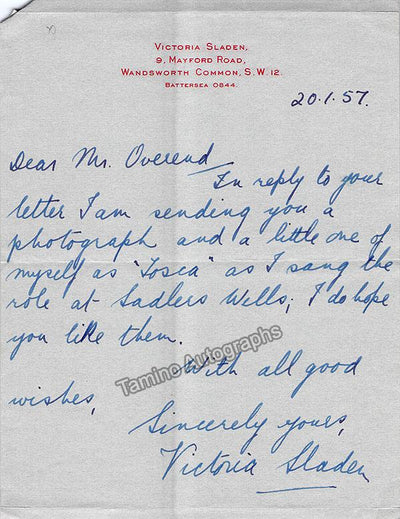 VICTORIA SLADEN,
9, MAYFORD ROAD,
WANDSWORTH COMMON, S.W. 12.
BATTERSEA 0844.
20.1.57.
Dear Mr. Overend
In reply to your
letter I am sending you a
photograph and a little one of
myself as "Tosca" as I sang the
role at Sadlers Wells; I do hope
you like them.
Tamino Autographs
With all good
wishes,
Sincerely yours,
Victoria Sladen